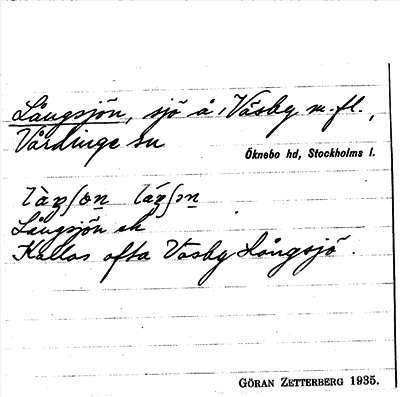 Långsjön, sjö å Väsby m. fl.,
Vårdinge sn
Öknebo hd, Stockholms l.
Långsjön ek
Kallas ofta Väsby Långsjö.
GÖRAN ZETTERBERG 1935.